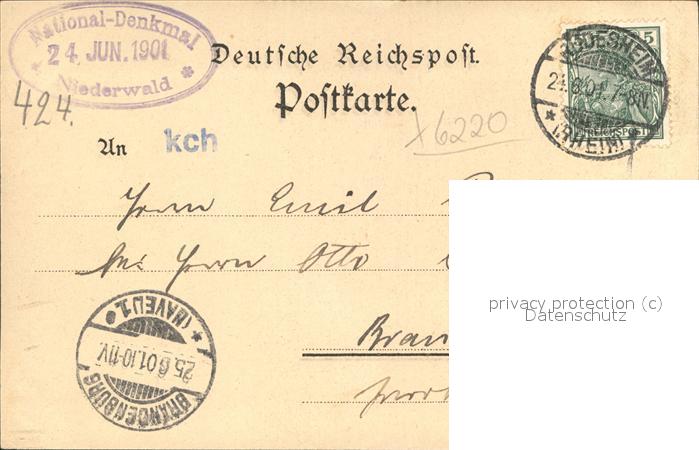 National-Denkmal
24. JUN. 1901
* Niederwald *
Deutsche Reichspost.
Postkarte.
424.
RÜDESHEIM
24.6.01. 7-8N
* (RHEIN)
5
REICHSPOST
An kch
x6220
Herrn Emil
bei Herrn Otto
privacy protection (c)
Datenschutz
Bran
BRANDENBURG
25.6.01.10-11V.
* (HAVEL) 1.